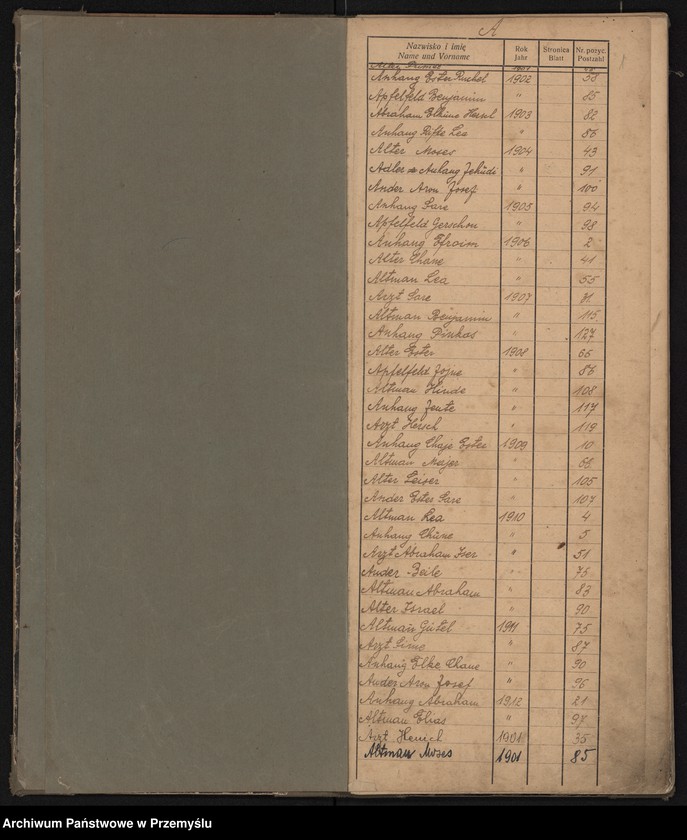 A
Nazwisko i imię Rok Stronica Nr. pozyc.
Name und Vorname Jahr Blatt Postzahl
Anhang Ester Ruchel 1902 58
Apfelfeld Benjamin " 85
Abraham Elkune Hersch 1903 82
Anhang Rifke Lea " 86
Alter Moses 1904 43
Adler Anhang Jehudi " 91
Ander Aron Josef " 100
Anhang Sare 1905 94
Apfelfeld Gerschon " 98
Anhang Efroim 1906 2
Alter Chane " 41
Altman Lea " 55
Arzt Sare 1907 71
Altman Benjamin " 115
Anhang Pinkas " 127
Alter Ester 1908 66
Apfelfeld Jojne " 86
Altman Hinde " 108
Anhang Jente " 117
Arzt Hersch " 119
Anhang Chaje Ester 1909 10
Altman Mejer "
Alter Leiser " 105
Ander Ester Sare " 107
Altman Lea 1910 4
Anhang Chune " 5
Arzt Abraham Iser " 51
Ander Beile " 75
Altman Abraham " 83
Alter Israel " 90
Altman Gitel 1911 75
Arzt Sime " 87
Anhang Elke Chane " 90
Ander Aron Josef " 96
Anhang Abraham 1912 21
Altman Elias " 97
Arzt Henich 1901 35
Altman Moses 1901 85
Archiwum Państwowe w Przemyślu